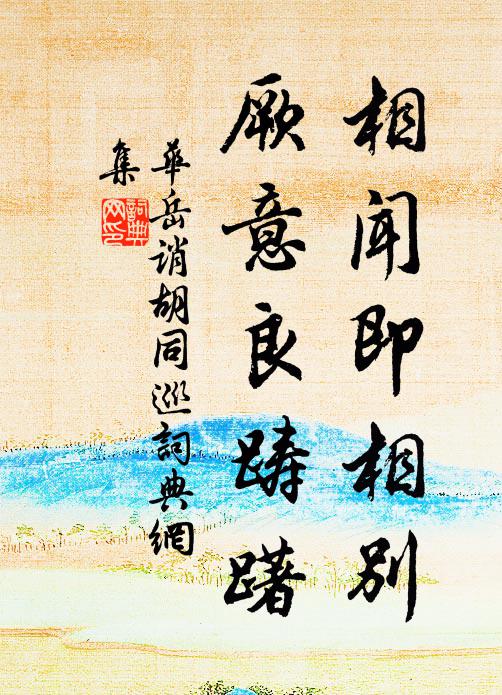 相闻即相别
厥意良踌躇
華岳诮胡同巡詞典網
集
詞典网印